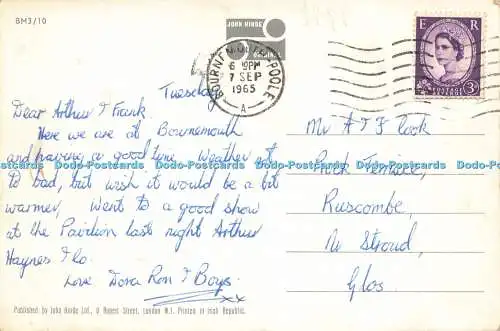 BM3/10
JOHN HINDE
ORIGINAL
BOURNEMOUTH-POOLE
6 PM
7 SEP
1965
A
E R
POSTAGE
REVENUE
3D
Tuesday
Dear Arthur & Frank.
Here we are at Bournemouth
and having a good time. Weather not
to bad, but wish it would be a bit
warmer, Went to a good show
at the Pavilion last night Arthur
Haynes & Co.
Love Dora Ron & Boys.
xx
Mr A & F Cook
Terrace,
Ruscombe,
Nr Stroud,
Glos.
Published by John Hinde Ltd., 6 Rupert Street, London W.1. Printed in Irish Republic.
Dodo-Postcards Dodo-Postcards Dodo-Postcards Dodo-Postcards Dodo-Postcards Dodo-Postcards